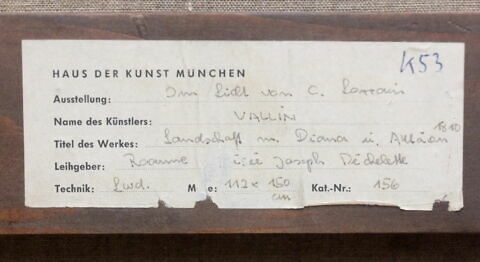 K53
HAUS DER KUNST MÜNCHEN
Ausstellung: Im Licht von C. Lorrain
Name des Künstlers: VALLIN
Titel des Werkes: Landschaft m. Diana u. Aktäon 1810
Leihgeber: Roanne Joseph Déchelette
Technik: Lwd. M e: 112 x 150 cm Kat.-Nr.: 156